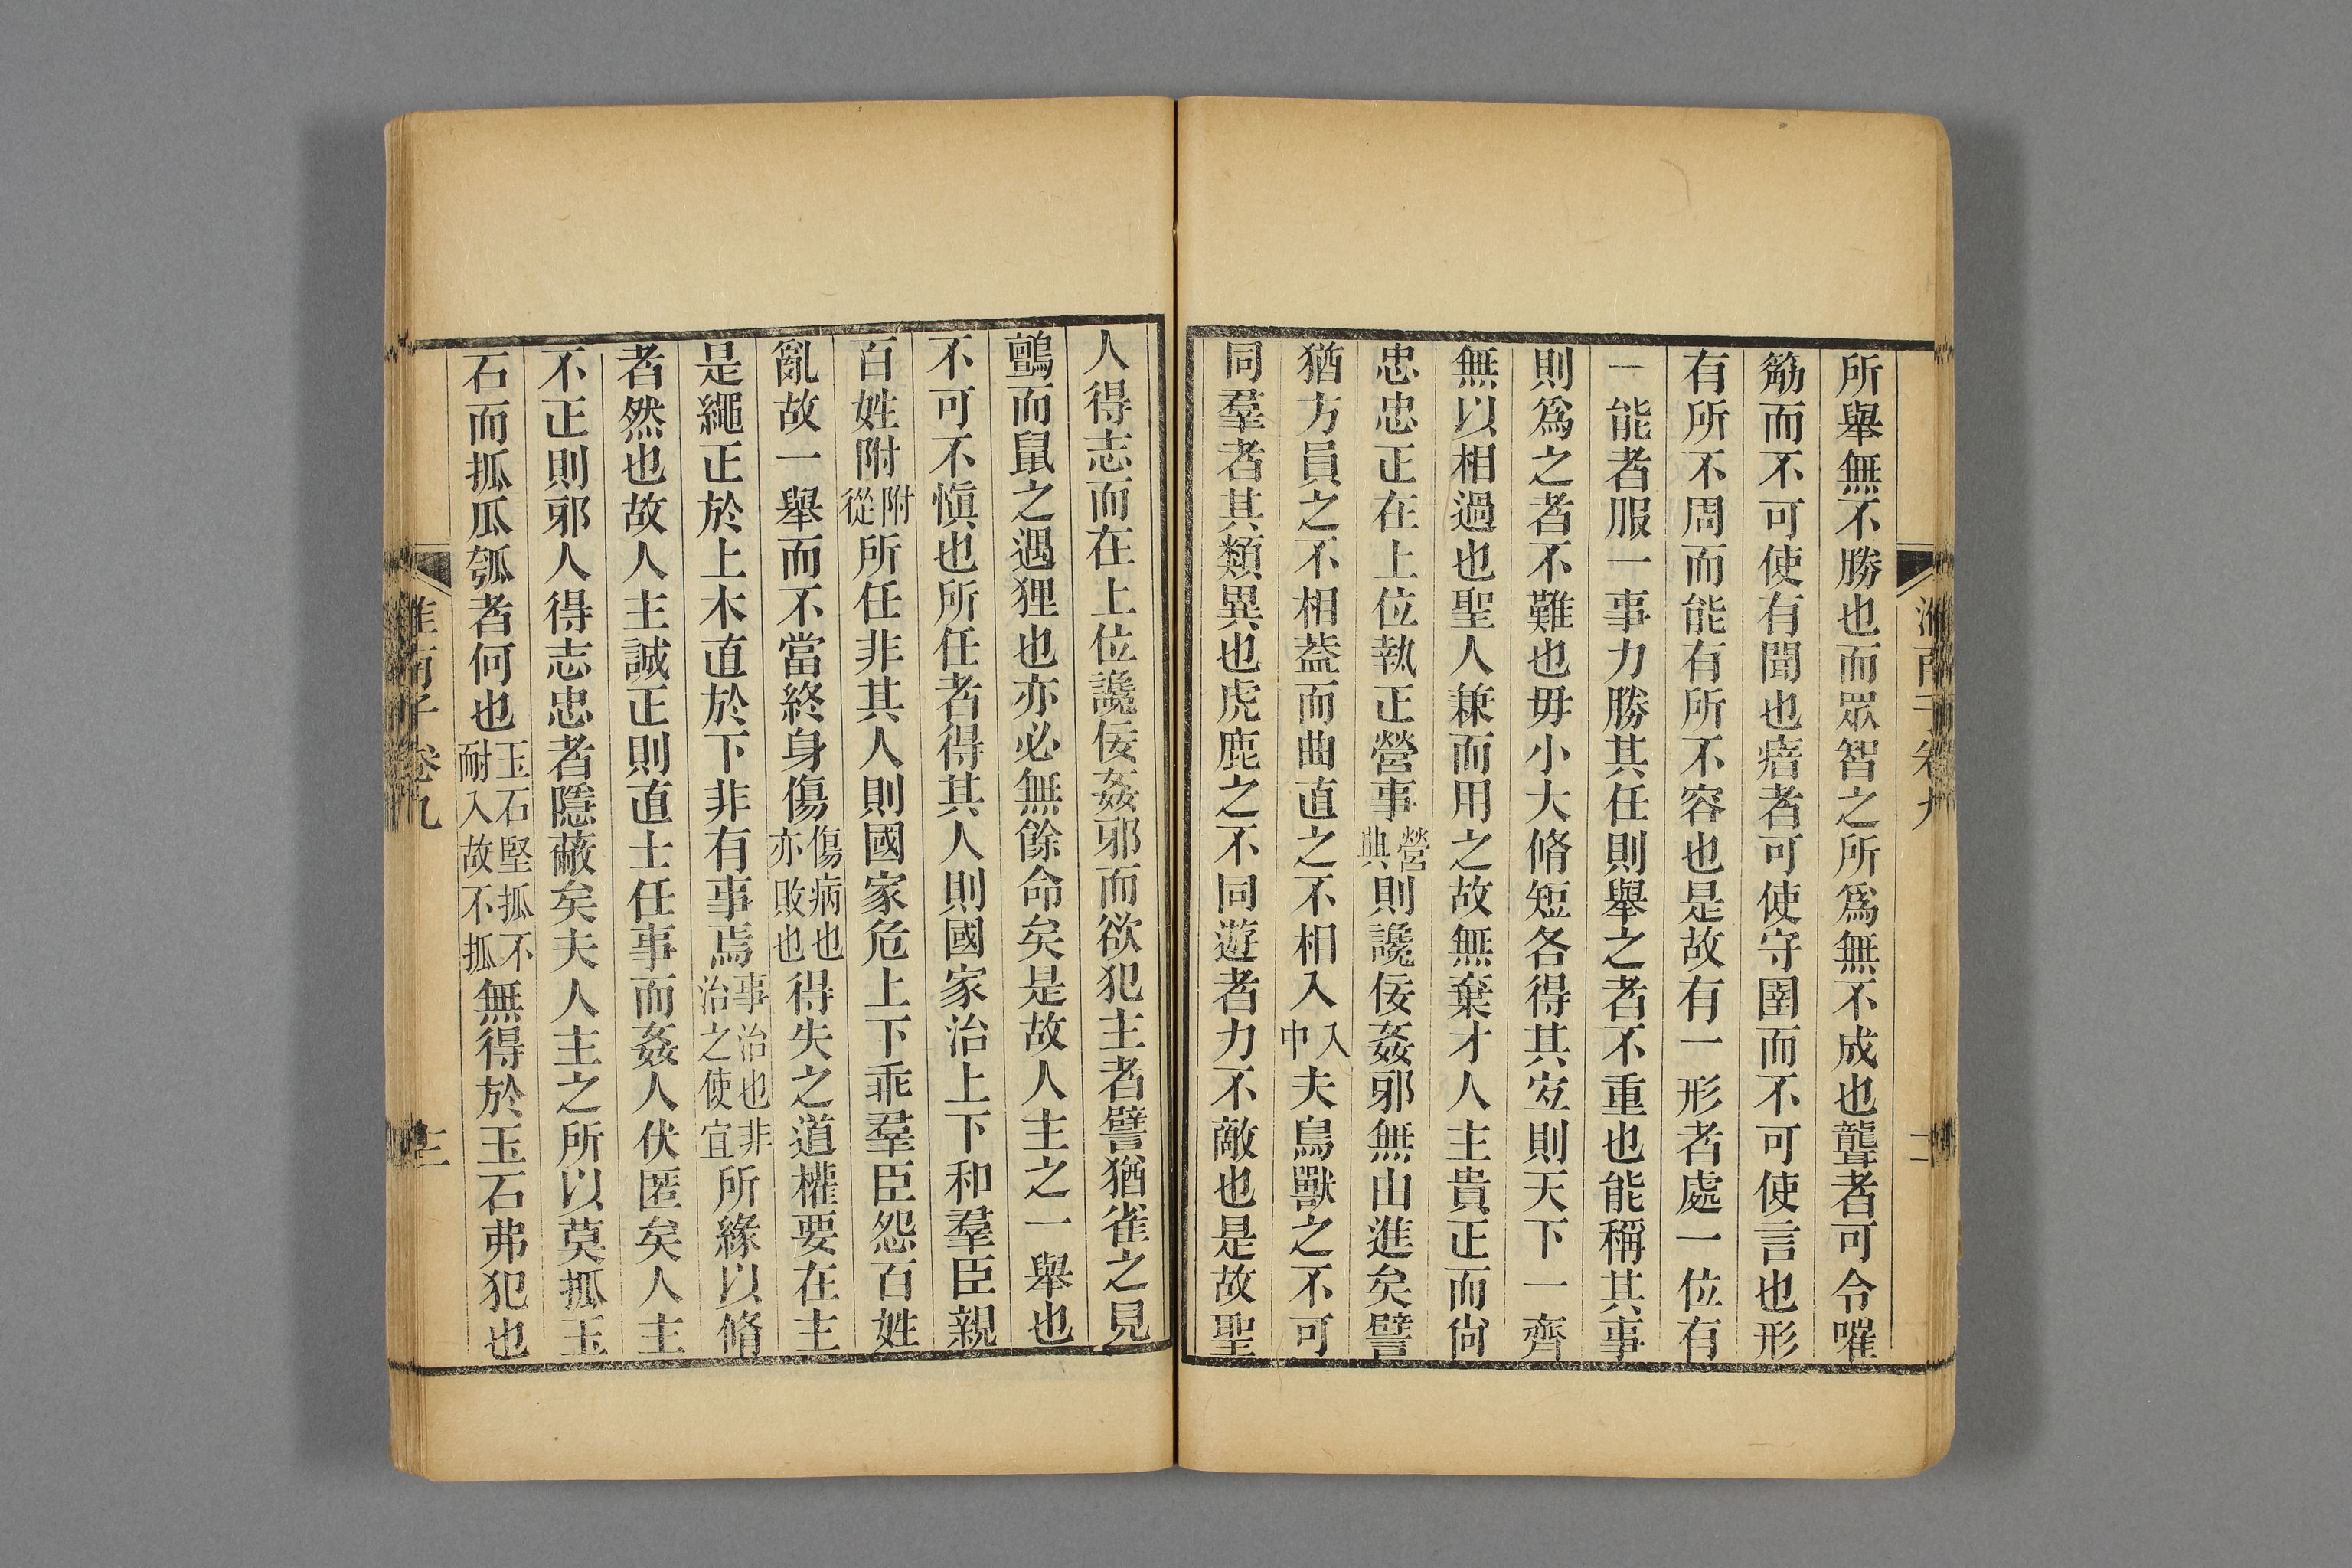 淮南子卷九
所舉無不勝也而眾智之所爲無不成也聾者可令嗺
筋而不可使有聞也瘖者可使守圉而不可使言也形
有所不周而能有所不容也是故有一形者處一位有
一能者服一事力勝其任則舉之者不重也能稱其事
則爲之者不難也毋小大脩短各得其宐則天下一齊
無以相過也聖人兼而用之故無棄才人主貴正而尙
忠忠正在上位執正營事營典則讒佞姦邪無由進矣譬
猶方員之不相葢而曲直之不相入入中夫鳥獸之不可
同羣者其類異也虎鹿之不同遊者力不敵也是故聖
人得志而在上位讒佞姦邪而欲犯主者譬猶雀之見
鸇而鼠之遇狸也亦必無餘命矣是故人主之一舉也
不可不愼也所任者得其人則國家治上下和羣臣親
百姓附附從所任非其人則國家危上下乖羣臣怨百姓
亂故一舉而不當終身傷傷病也亦敗也得失之道權要在主
是繩正於上木直於下非有事焉事治也非治之使宜所緣以脩
者然也故人主誠正則直士任事而姦人伏匿矣人主
不正則邪人得志忠者隱蔽矣夫人主之所以莫抓玉
石而抓瓜瓠者何也玉石堅抓不耐入故不抓無得於玉石弗犯也
淮南子卷九